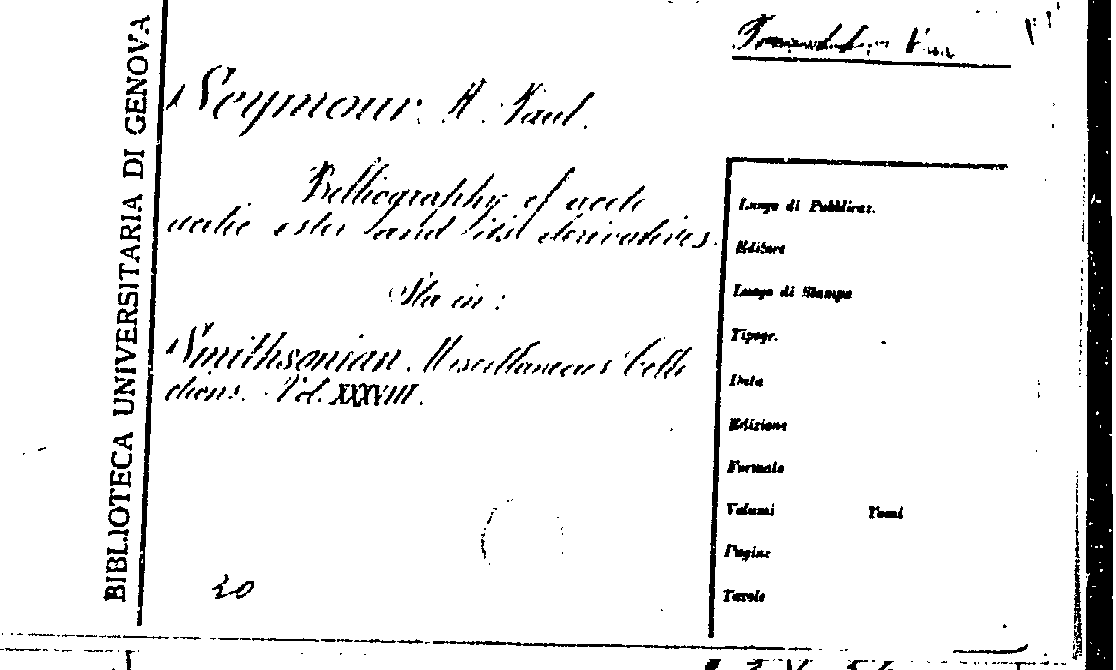 BIBLIOTECA UNIVERSITARIA DI GENOVA
Seymour. A. Paul.
Bibliography of aceto
acetic ester and its derivatives.
Sta in:
Smithsonian Miscellaneous Colle
ctions. Vol. XXXVIII.
20
Luogo di Pubblicaz.
Editore
Luogo di Stampa
Tipogr.
Data
Edizione
Formato
Volumi Tomi
Pagine
Tavole